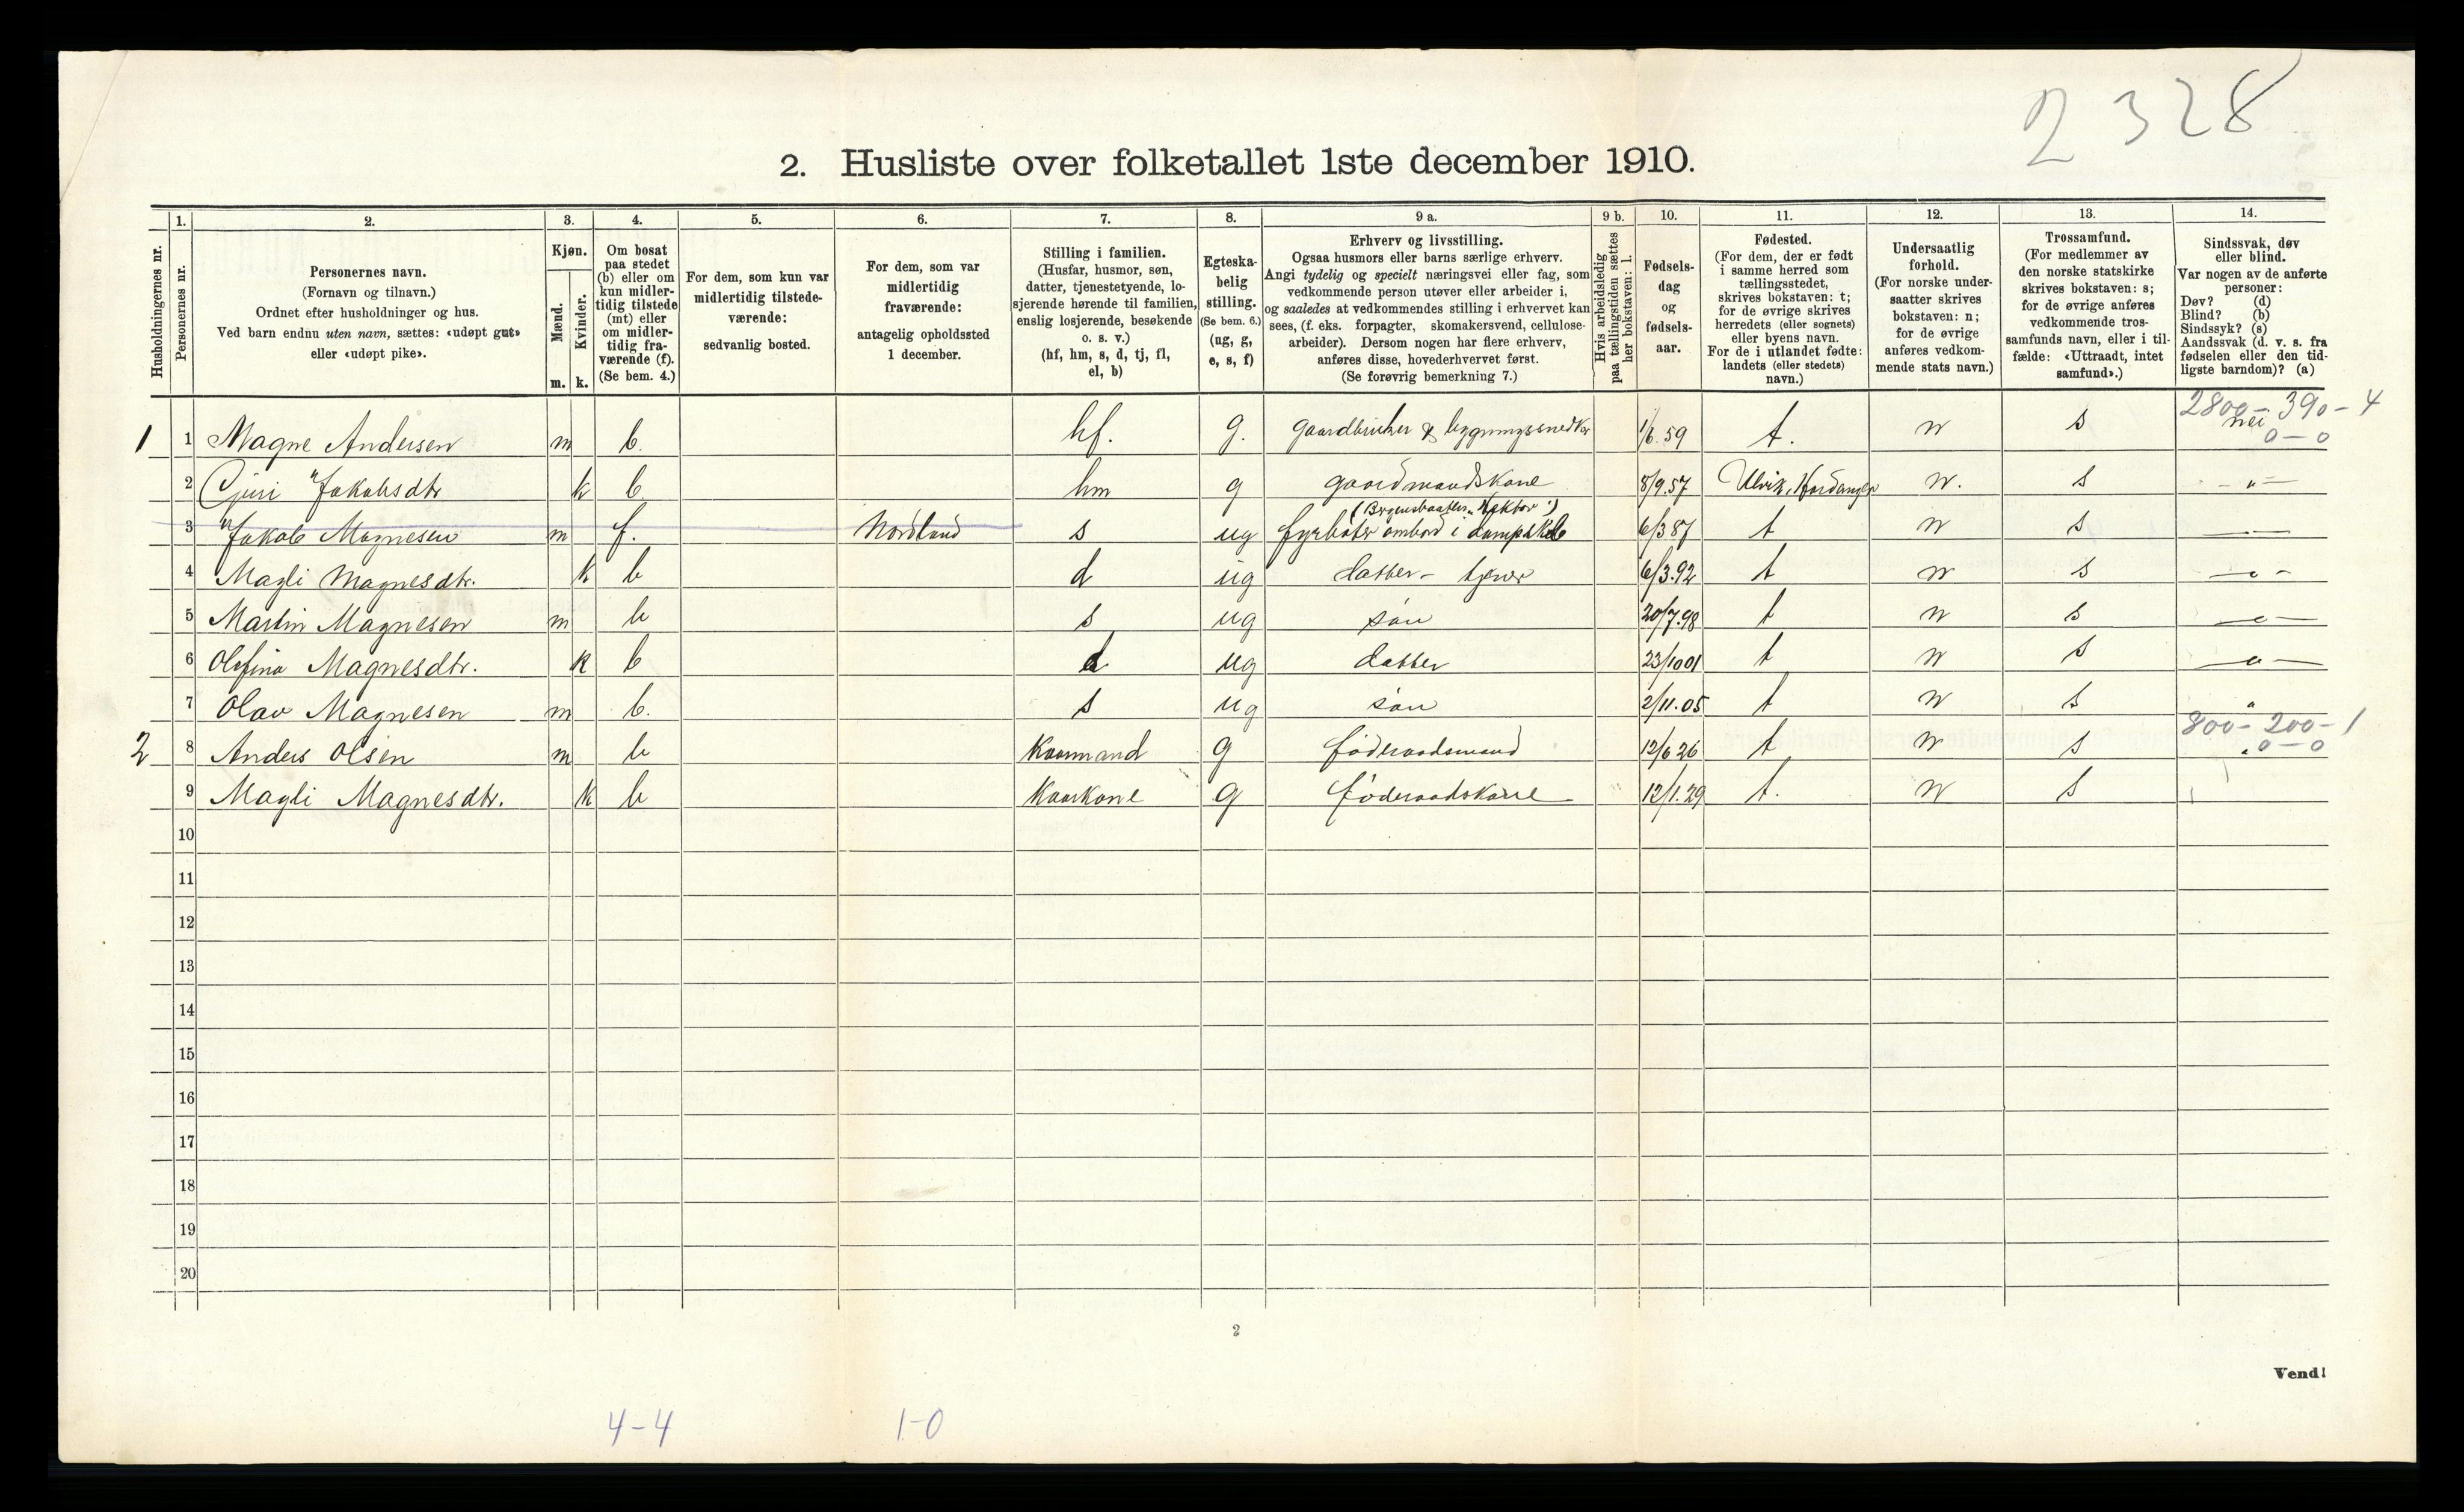 2328
2. Husliste over folketallet 1ste december 1910.
Husholdningernes nr.
1. Personernes nr.
2. Personernes navn.
(Fornavn og tilnavn.)
Ordnet efter husholdninger og hus.
Ved barn endnu uten navn, sættes: «udøpt gut»
eller «udøpt pike».
3. Kjøn.
Mænd. m.
Kvinder. k.
4. Om bosat
paa stedet
(b) eller om
kun midler-
tidig tilstede
(mt) eller
om midler-
tidig fra-
værende (f).
(Se bem. 4.)
5. For dem, som kun var
midlertidig tilstede-
værende:
sedvanlig bosted.
6. For dem, som var
midlertidig
fraværende:
antagelig opholdssted
1 december.
7. Stilling i familien.
(Husfar, husmor, søn,
datter, tjenestetyende, lo-
sjerende hørende til familien,
enslig losjerende, besøkende
o. s. v.)
(hf, hm, s, d, tj, fl,
el, b)
8. Egteska-
belig
stilling.
(Se bem. 6.)
(ug, g,
e, s, f)
9 a. Erhverv og livsstilling.
Ogsaa husmors eller barns særlige erhverv.
Angi tydelig og specielt næringsvei eller fag, som
vedkommende person utøver eller arbeider i,
og saaledes at vedkommendes stilling i erhvervet kan
sees, (f. eks. forpagter, skomakersvend, cellulose-
arbeider). Dersom nogen har flere erhverv,
anføres disse, hovederhvervet først.
(Se forøvrig bemerkning 7.)
9 b. Hvis arbeidsledig
paa tællingstiden sættes
her bokstaven: l.
10. Fødsels-
dag
og
fødsels-
aar.
11. Fødested.
(For dem, der er født
i samme herred som
tællingsstedet,
skrives bokstaven: t;
for de øvrige skrives
herredets (eller sognets)
eller byens navn.
For de i utlandet fødte:
landets (eller stedets)
navn.)
12. Undersaatlig
forhold.
(For norske under-
saatter skrives
bokstaven: n;
for de øvrige
anføres vedkom-
mende stats navn.)
13. Trossamfund.
(For medlemmer av
den norske statskirke
skrives bokstaven: s;
for de øvrige anføres
vedkommende tros-
samfunds navn, eller i til-
fælde: «Uttraadt, intet
samfund».)
14. Sindssvak, døv
eller blind.
Var nogen av de anførte
personer:
Døv? (d)
Blind? (b)
Sindssyk? (s)
Aandssvak (d. v. s. fra
fødselen eller den tid-
ligste barndom)? (a)
2800 - 390 - 4
1 1 Magne Andersen m b. hf. g. gaardbruker & bygningssnedker 1/6.59 t. n s nei
0 - 0
2 Guri Jakobsdtr k b hm g gaardmandskone 8/9.57 Ulvik, Hardanger n. s - " -
(Bergensbaaten "Hektor")
3 Jakob Magnesen m f. Nordland s ug fyrbøter ombord i dampskib 6/3 87 t n s
4 Magli Magnesdtr. k b d ug datter - 6/3.92 t n s - " -
5 Martin Magnesen m b s ug søn 20/7.98 t n s - " -
6 Olefina Magnesdtr. k b d ug datter 23/10 01 t n s - " -
7 Olav Magnesen m b. s ug søn 2/11.05 t n s "
800 - 200 - 1
2 8 Anders Olsen m b Kaarmand g føderaadsmand 12/6 26 t n s " 0 - 0
9 Magli Magnesdtr. k b Kaarkone g føderaadskone 12/1.29 t. n s
10
11
12
13
14
15
16
17
18
19
20
2
Vend!
4-4 1-0